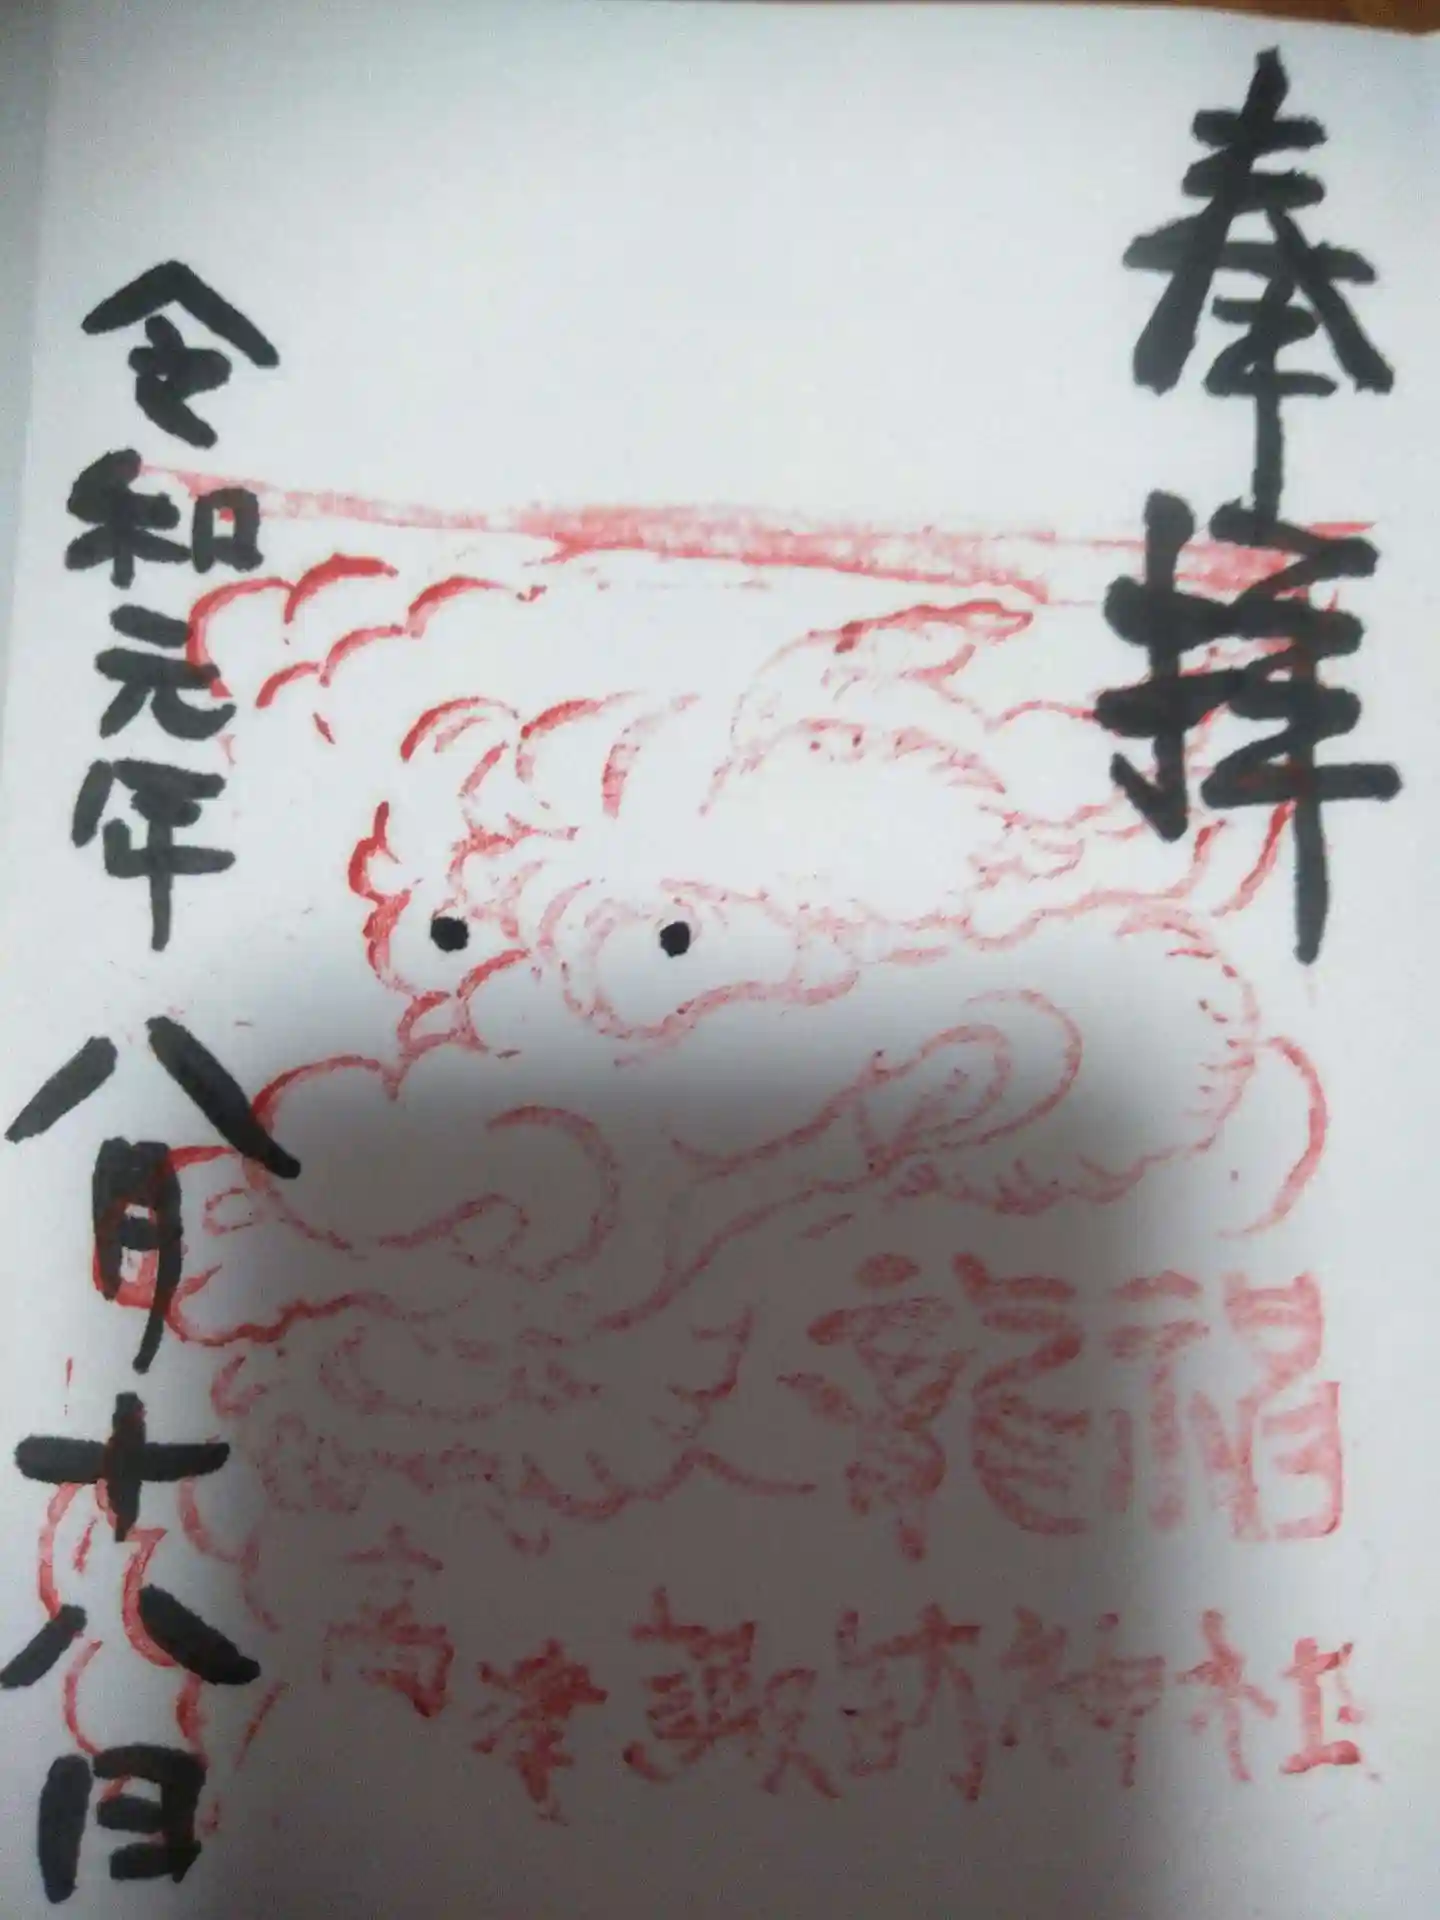 奉拝
龍福
高津諏訪神社
令和元年八月十八日